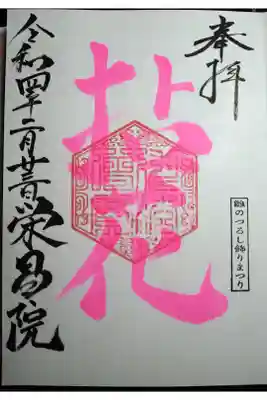 奉拝
雛のつるし飾りまつり
拈花
令和四年二月廿三日 栄昌院